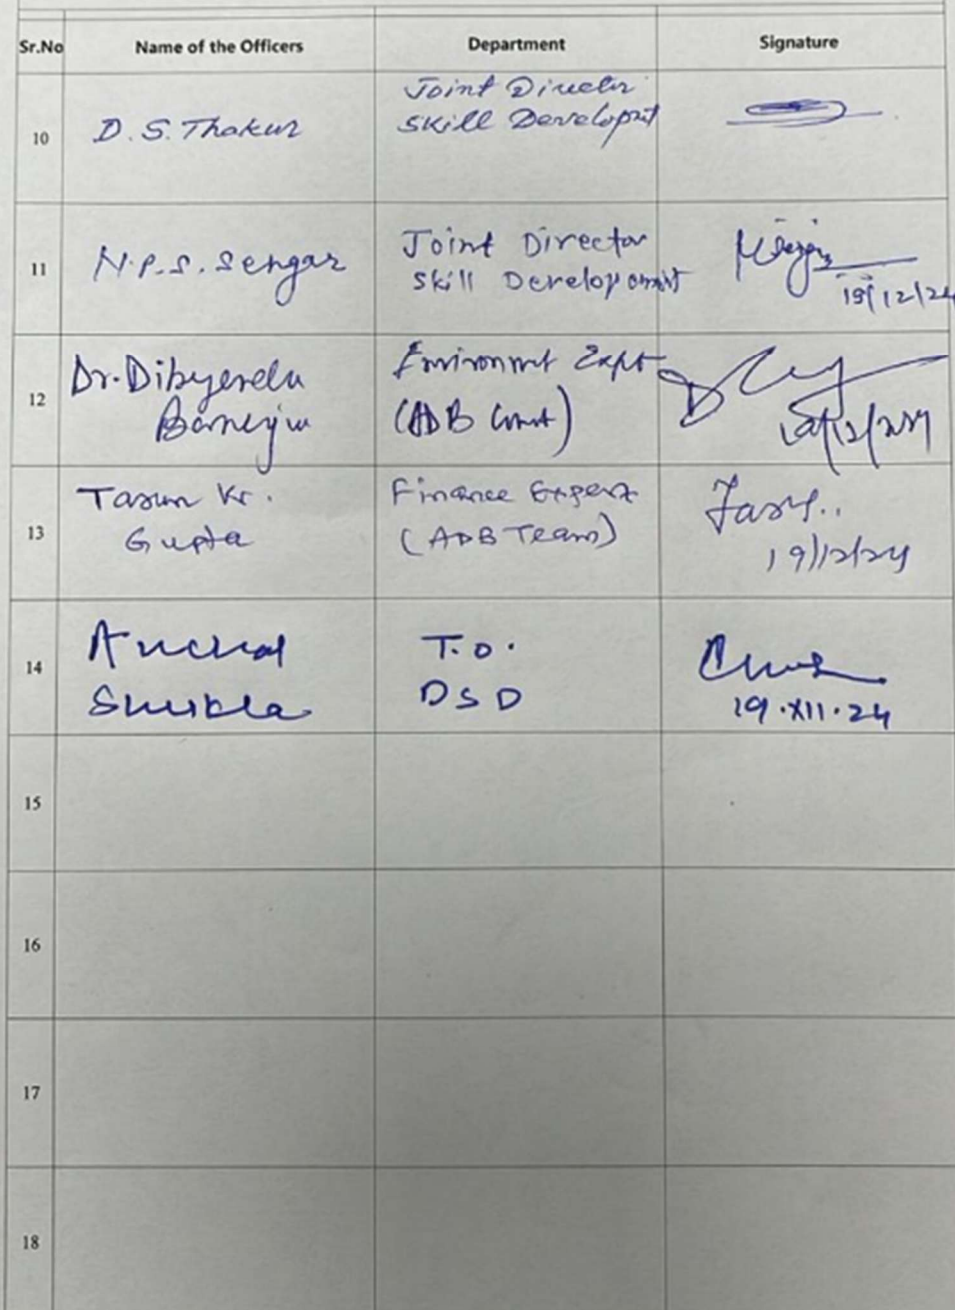 Sr.No Name of the Officers Department Signature
10 D. S. Thakur Joint Director
Skill Developmt
11 N.P.S. Sengar Joint Director
Skill Development
19/12/24
12 Dr. Dibyendu
Banerjee
Environmt Expt
(ADB Const)
13 Tarun Kr.
Gupta
Finance Expert
(ADB Team)
19/12/24
14 Anchal
Shukla
T.O.
DSD
19.XII.24
15
16
17
18